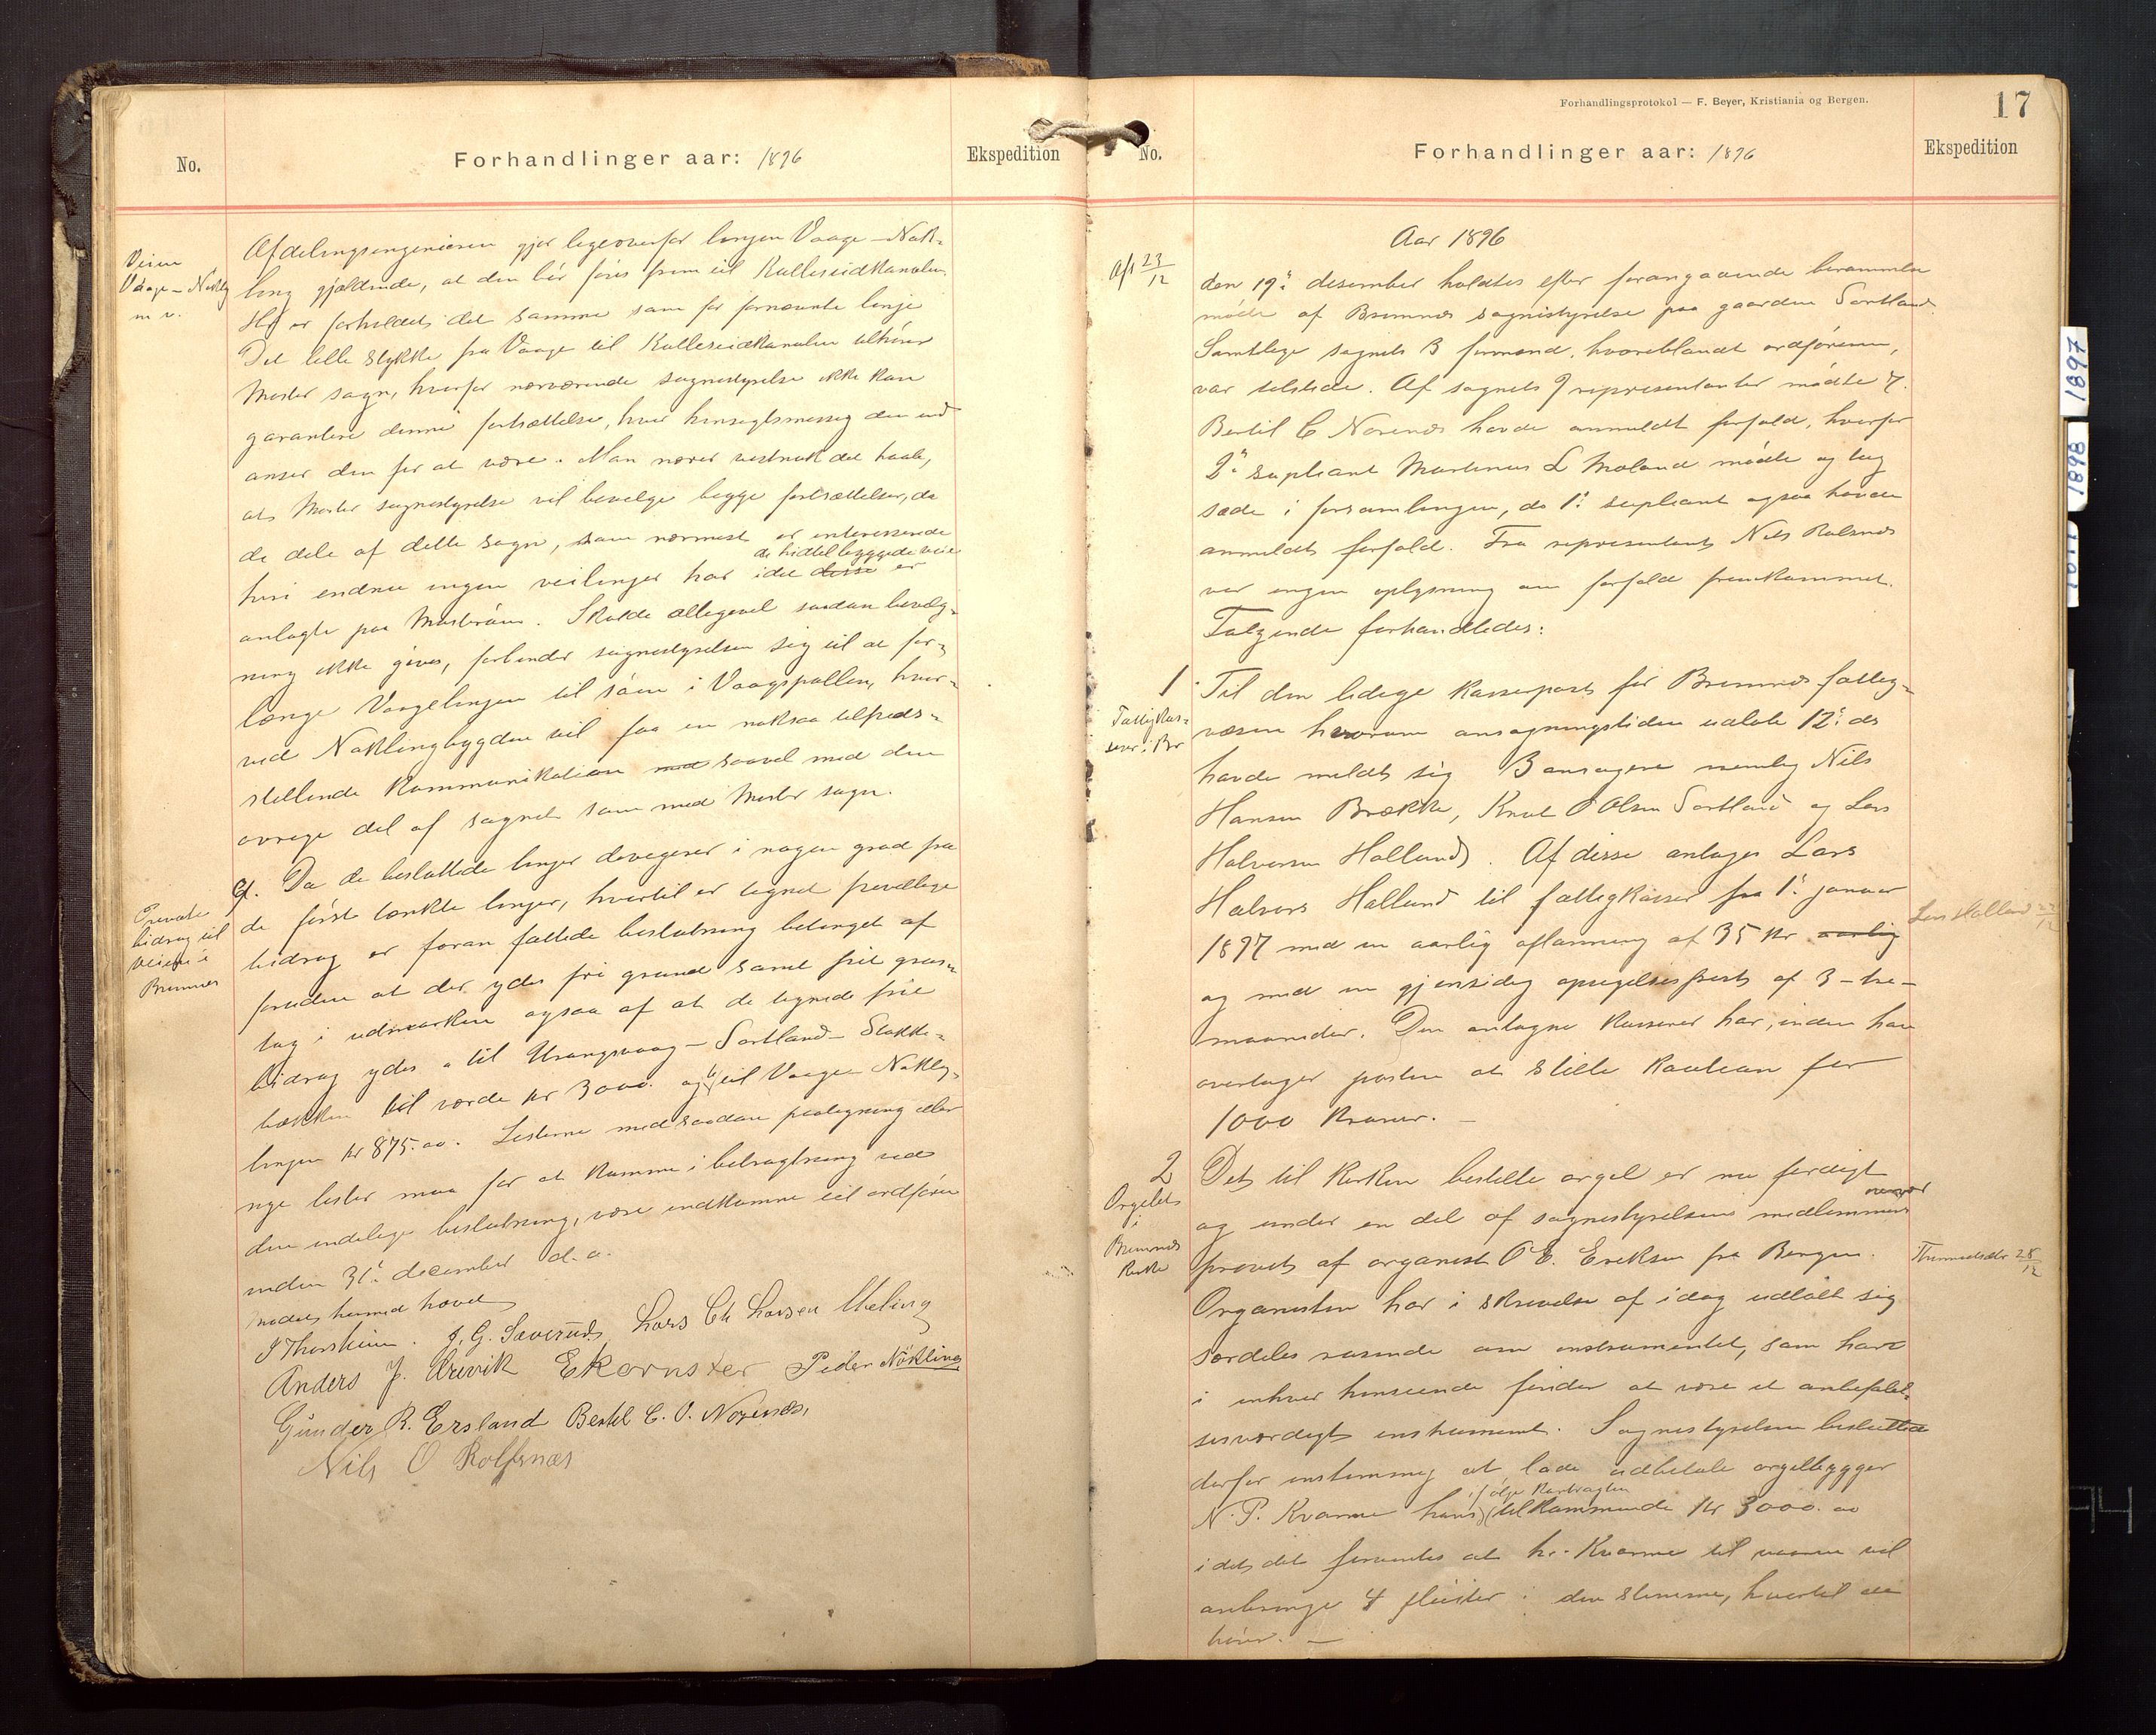 No.
Forhandlinger aar: 1896
Ekspedition
Veien
Vaage – Nøkling
m. v.
Afdelingsingeniøren gjør ligeoverfor linjen Vaage – Nøk-
ling gjældende, at den bør føres frem til Kulleseidkanalen.
er forholdet det samme som for fornævnte linje
Det lille stykke fra Vaage til Kulleseidkanalen tilhører
Moster sogn, hvorfor nærværende sognestyrelse ikke kan
garantere denne fortsættelse, hvor hensigtsmessig den end
anser den for at være. Man nærer vistnok det haab,
at Moster sognestyrelse vil bevilge begge fortsættelser, da
de dele af dette sogn, som nærmest er interesserede
heri endnu ingen veilinjer har idet disse de hidtil byggede veie er
anlagte paa Mosterøen. Skulde alligevel saadan bevilg-
ning ikke gives, forbinder sognestyrelsen sig til at for-
længe Vaagelinjen til søen i Vaagspollen, hvor-
ved Nøklingbygden vil faa en noksaa tilfreds-
stillende Kommunikation med saavel med den
øvrige del af sognet som med Moster sogn.
Private
bidrag til
veiene i
Bremnes
9. Da de besluttede linjer devigerer i nogen grad fra
de først tænkte linjer, hvortil er tegnet frivillige
bidrag er foran fattede beslutning betinget af
foruden at der ydes fri grund samt frit grus-
tag i udmarken ogsaa af at de tegnede frie
bidrag ydes a til Urangsvaag – Sortland – Stokke-
bækken til værde kr 3000. og b) til Vaage Nøkling-
linjen kr 875.00. Listerne med saadan paategning eller
nye lister maa for at komme i betragtning ved
den endelige beslutning, være indkomne til ordføreren
inden 31te december d. a.
Mødet hermed hævet
J Thorsheim. J. G. Sæverud. Lars Ch Larsen Meling
Anders J. Urevik E Kornster Peder Nøkling
Gunder R. Ersland Bertel C. O. Norenæs,
Nils O Rolfsnæs
Forhandlingsprotokol — F. Beyer, Kristiania og Bergen.
17
No.
Forhandlinger aar: 1896
Ekspedition
Aar 1896
Afs 23/12
den 19de desember holdtes efter forangaaende berammelse
møde af Bremnes sognestyrelse paa gaarden Sortland.
Samtlige sognets 3 formænd, hvoriblandt ordføreren,
var tilstede. Af sognets 9 repræsentanter mødte 7.
Bertil C Norenæs havde anmeldt forfald, hvorfor
2den supliant Martinus L Moland mødte og tog
sæde i forsamlingen, da 1ste supliant ogsaa havde
anmeldt forfald. Fra representant Nils Rolsnæs
var ingen oplysning om forfald fremkommet.
Følgende forhandledes:
1
Fattigkas-
serer i Br
Til den ledige kasserpost for Bremnæs fattig-
væsen hvorom ansøgningstiden udløb 12te ds
havde meldt sig 3 ansøgere nemlig Nils
Hansen Brække, Knut O Olsen Sortland og Lars
Halvorsen Halland. Af disse antages Lars
Halvors Halland til fattigkasser fra 1ste januar
1897 med en aarlig aflønning af 35 kr aarlig
og med en gjensidig opsigelsesfrist af 3 – tre –
maaneder. Den antagne kasserer har, inden han
overtager posten at stille kaution for
1000 kroner. –
Lars Halland 22/12
2
Orgelet
i
Bremnæs
kirke
Det til kirken bestilte orgel er nu færdigt
og under en del af sognestyrelsens medlemmers nærvær
prøvet af organist O E. Eriksen fra Bergen.
Organisten har i skrivelse af idag udtalt sig
særdeles rosende om instrumentet, som han
i enhver henseende finder at være et anbefalel-
sesværdigt instrument. Sognestyrelsen besluttede
derfor enstemmig at lade udbetale orgelbygger
N. P. Kvarme hans ifølge kontrakten tilkommende kr 3000.00
idet det forventes at hr. Kvarme til vaaren vil
anbringe 4 fløiter i den stemme, hvortil de
hører. –
28/12